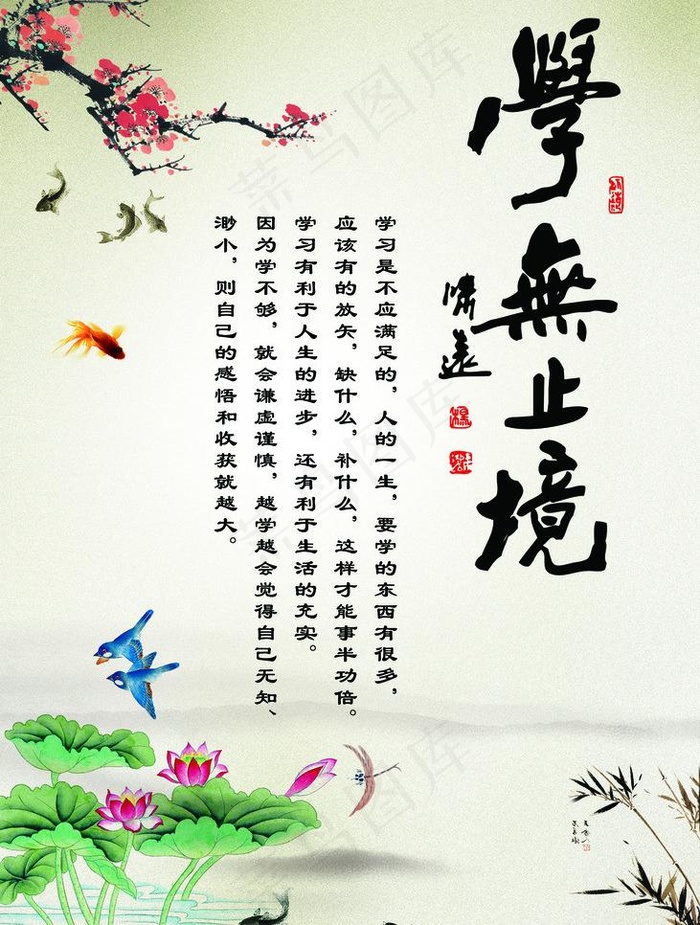 學無止境
啸遠
学习是不应满足的，人的一生，要学的东西有很多，
应该有的放矢，缺什么，补什么，这样才能事半功倍。
学习有利于人生的进步，还有利于生活的充实。
因为学不够，就会谦虚谨慎，越学越会觉得自己无知、
渺小，则自己的感悟和收获就越大。
菜鸟图库
菜鸟图库
菜鸟图库